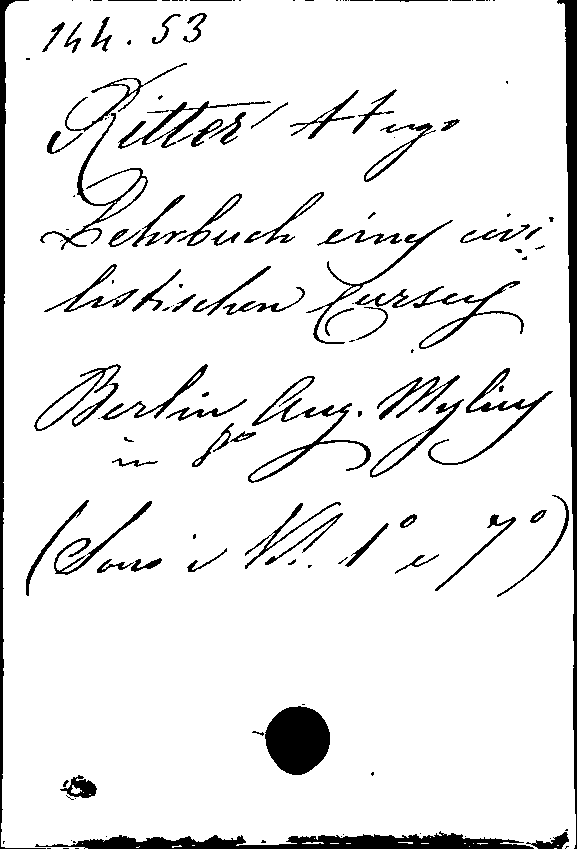 144. 53
Ritter Hugo
Lehrbuch eines civi-
listischen Cursus
Berlin, Aug. Mylius
in 8º
(Sono i Vol. 1º e 7º)